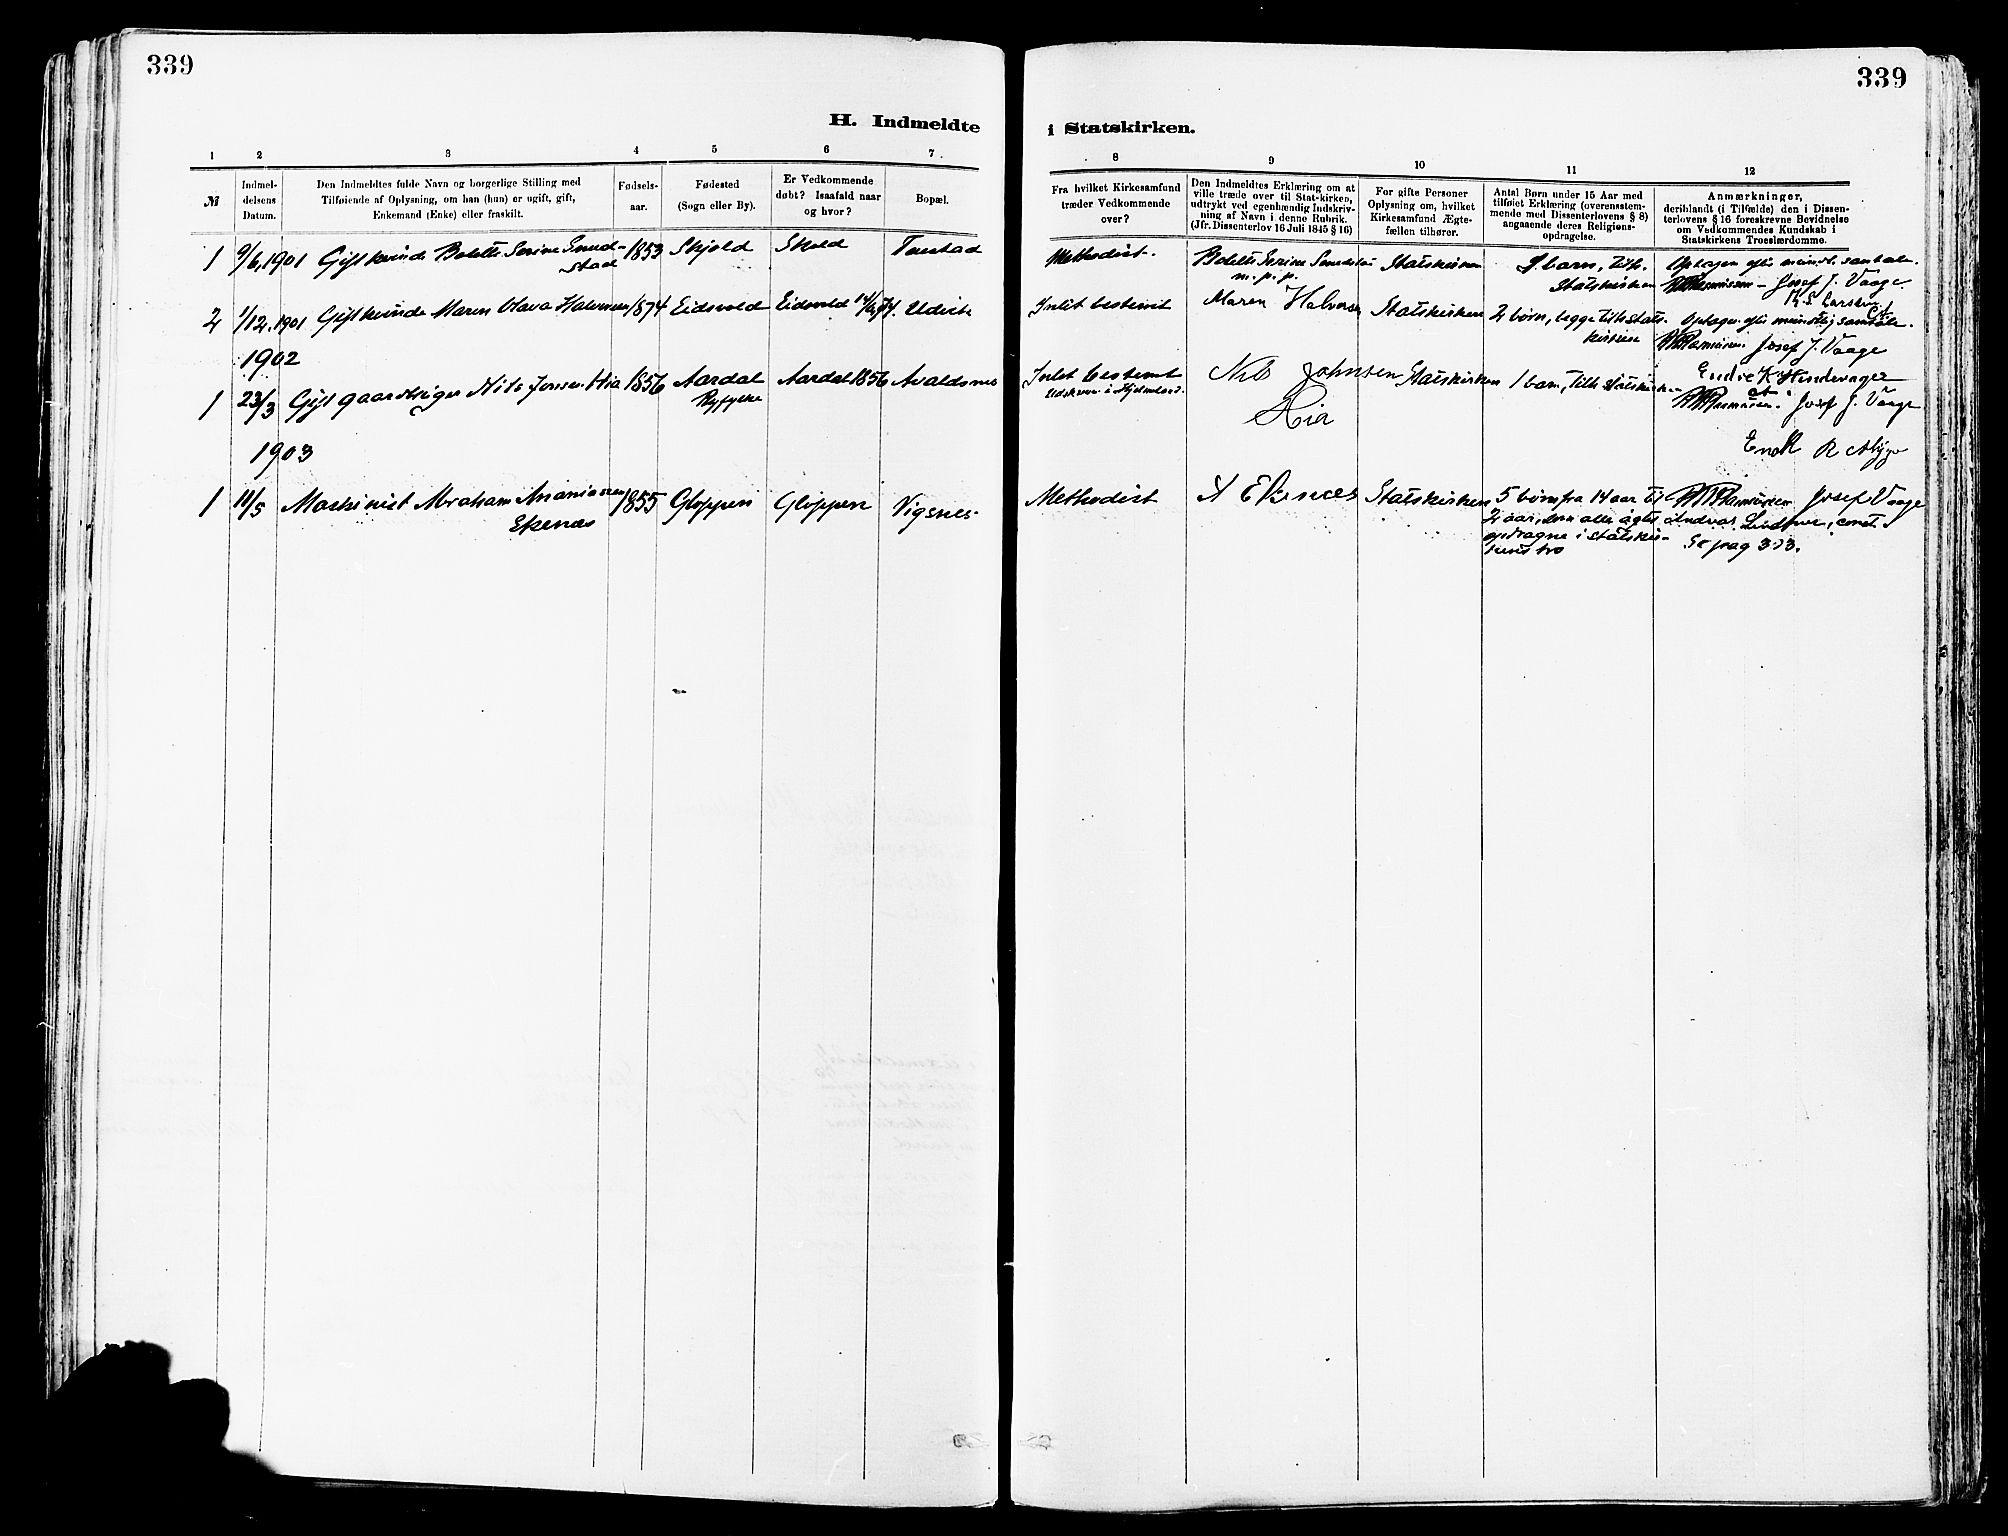 339
339
H. Indmeldte
i Statskirken.
1 2 3 4 5 6 7
8 9 10 11 12
№
Indmel-
delsens
Datum.
Den Indmeldtes fulde Navn og borgerlige Stilling med
Tilføiende af Oplysning, om han (hun) er ugift, gift,
Enkemand (Enke) eller fraskilt.
Fødsels-
aar.
Fødested
(Sogn eller By).
Er Vedkommende
døbt? Isaafald naar
og hvor?
Bopæl.
Fra hvilket Kirkesamfund
træder Vedkommende
over?
Den Indmeldtes Erklæring om at
ville træde over til Stat-kirken,
udtrykt ved egenhændig Indskriv-
ning af Navn i denne Rubrik.
(Jfr. Dissenterlov 16 Juli 1845 § 16)
For gifte Personer
Oplysning om, hvilket
Kirkesamfund Ægte-
fællen tilhører.
Antal Børn under 15 Aar med
tilføiet Erklæring (overensstem-
mende med Dissenterlovens § 8)
angaaende deres Religions-
opdragelse.
Anmærkninger,
deriblandt (i Tilfælde) den i Dissen-
terlovens § 16 foreskrevne Bevidnelse
om Vedkommendes Kundskab i
Statskirkens Troeslærdomme.
1 9/6, 1901 Gift kvinde Bolette Serine Smed-
stad
1853 Skjold Skold
Methodist.
Bolette Serine
m. p. p.
Statskirken
barn, tilh.
Statskirken
Optagen efter mundtl. samtale.
Rasmussen - Josef J. Vaage
K. S. Larsen
2 1/12. 1901 Gift kvinde Maren Olava Halvorsen 1874 Eidsvold Eidsvold
Intet bestemt Maren Halvorsen Statskirken 2 børn, begge tilh. Stats-
kirken
Optagen efter mundtlig samtale.
Rasmussen. Josef J. Vaage
1902
1 23/3 Gift gaardbruger Nils Jonsen Hia 1856 Aardal
Ryfylke
Aardal 1856 Avaldsnes
Intet bestemt
Udskreven i Hjelmeland.
Nils Johnsen
Hia
Statskirken 1 barn, tilh. Statskirken
Endre K. Hindevager
Rasmussen. Josef J. Vaage
1903
1 11/5 Maskinist Abraham Ananiassen
Ekenæs
1855 Gloppen Gloppen Vigsnes
Methodist A Ekenæs Statskirken 5 børn fra 14 aar til
2 aar, som alle agtes
opdragne i statskir-
kens tro
Rasmussen Josef Vaage
const.
Se pag 333.